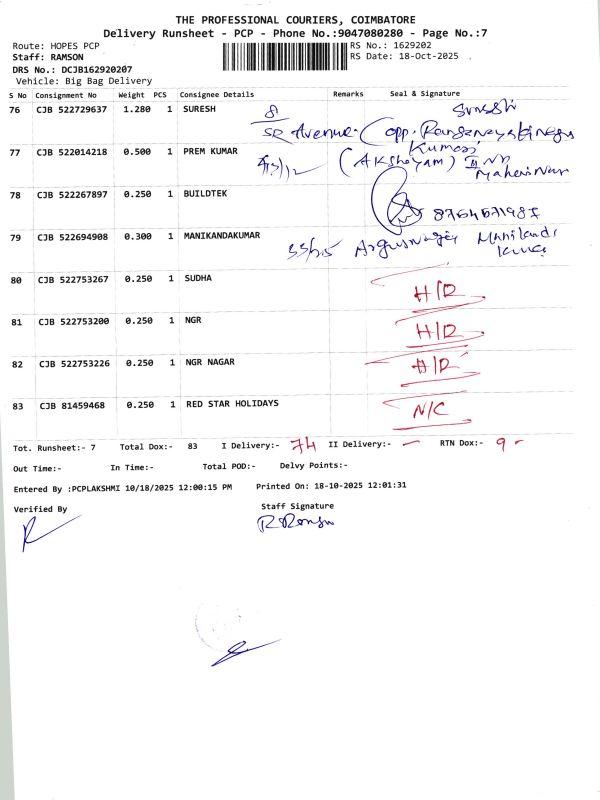 THE PROFESSIONAL COURIERS, COIMBATORE
Delivery Runsheet - PCP - Phone No.:9047080280 - Page No.:7
Route: HOPES PCP
RS No.: 1629202
Staff: RAMSON
RS Date: 18-Oct-2025
DRS No.: DCJB162920207
Vehicle: Big Bag Delivery
S No Consignment No Weight PCS Consignee Details Remarks Seal & Signature
76 CJB 522729637 1.280 1 SURESH 8 Suresh
SR Avenue
77 CJB 522014218 0.500 1 PREM KUMAR Kumar
(AKshayam)
78 CJB 522267897 0.250 1 BUILDTEK
79 CJB 522694908 0.300 1 MANIKANDAKUMAR
80 CJB 522753267 0.250 1 SUDHA H/D
81 CJB 522753200 0.250 1 NGR H/D
82 CJB 522753226 0.250 1 NGR NAGAR H/D
83 CJB 81459468 0.250 1 RED STAR HOLIDAYS N/C
Tot. Runsheet:- 7 Total Dox:- 83 I Delivery:- 74 II Delivery:- — RTN Dox:- 9 -
Out Time:- In Time:- Total POD:- Delvy Points:-
Entered By :PCPLAKSHMI 10/18/2025 12:00:15 PM Printed On: 18-10-2025 12:01:31
Verified By Staff Signature